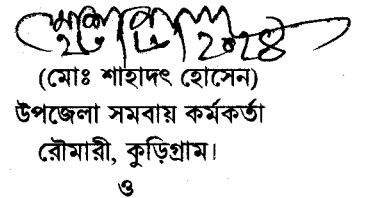 (মোঃ শাহাদৎ হোসেন)
উপজেলা সমবায় কর্মকর্তা
রৌমারী, কুড়িগ্রাম।
ও